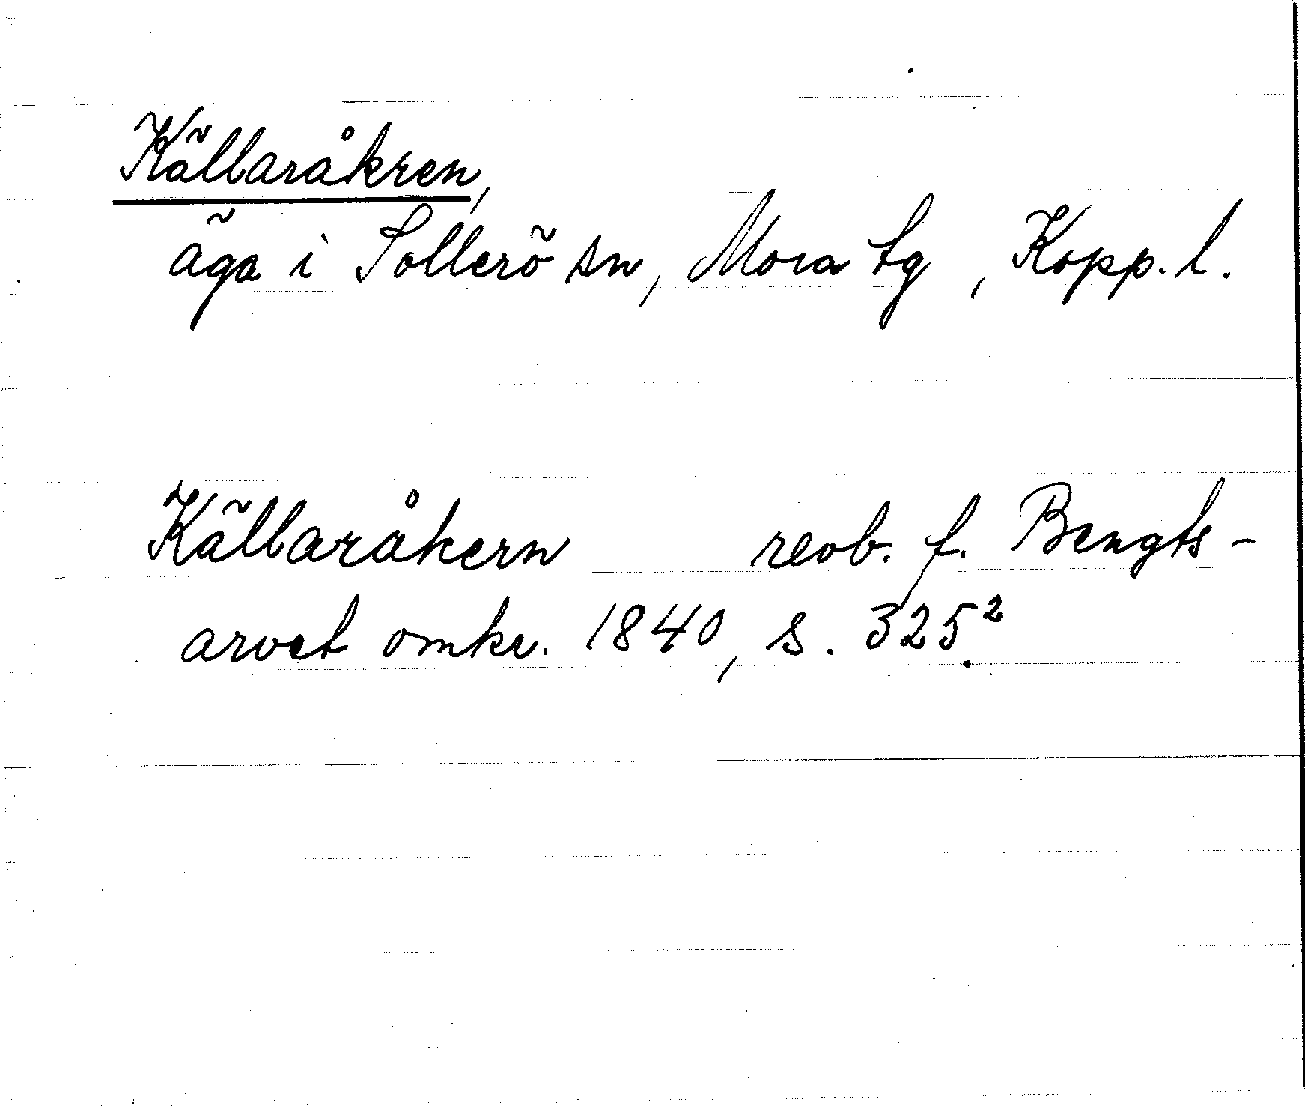 Källaråkren,
äga i Sollerö sn, Mora tg, Kopp. l.
Källaråkern reob. f. Bengts-
arvet omkr. 1840, s. 325²